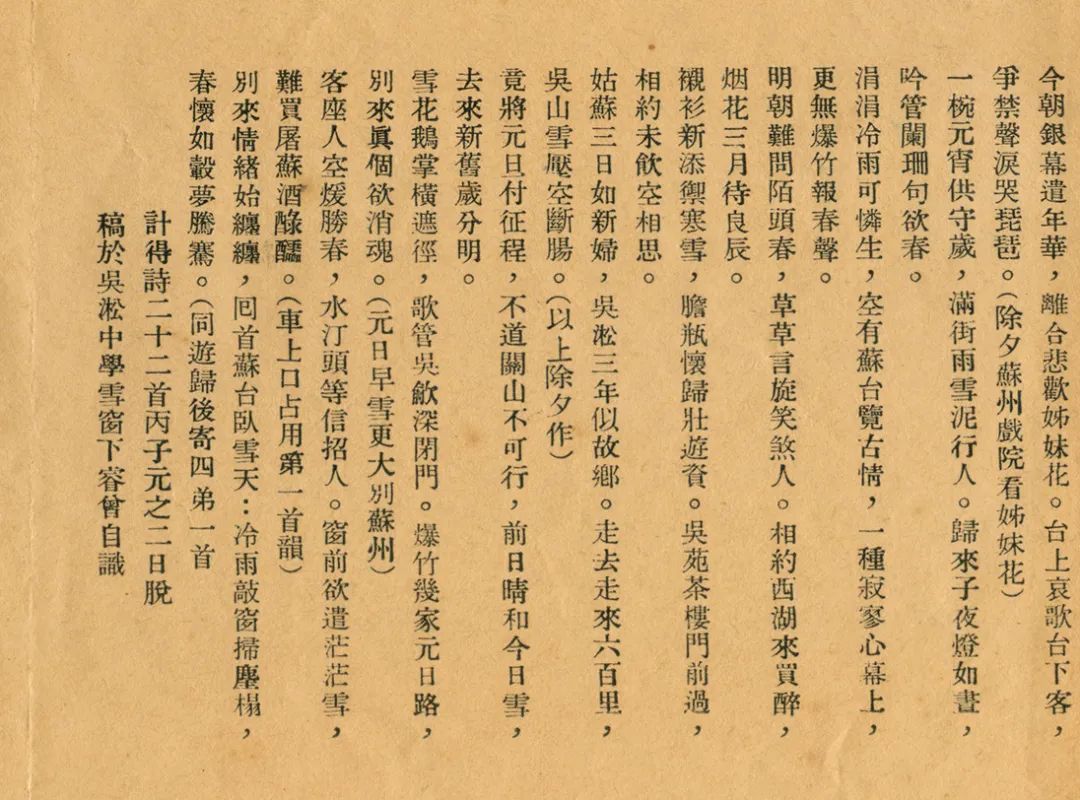 今朝銀幕遣年華，離合悲歡姊妹花。台上哀歌台下客，
爭禁聲淚哭琵琶。(除夕蘇州戲院看姊妹花)
一椀元宵供守歲，滿街雨雪泥行人。歸來子夜燈如晝，
吟管闌珊句欲春。
涓涓冷雨可憐生，空有蘇台覽古情，一種寂寥心幕上，
更無爆竹報春聲。
明朝難問陌頭春，草草言旋笑煞人。相約西湖來買醉，
烟花三月待良辰。
襯衫新添禦寒雪，膽瓶懷歸壯遊資。吳苑茶樓門前過，
相約未飲空相思。
姑蘇三日如新婦，吳淞三年似故鄉。走去走來六百里，
吳山雪壓空斷腸。(以上除夕作)
竟將元旦付征程，不道關山不可行，前日晴和今日雪，
去來新舊歲分明。
雪花鵝掌橫遮徑，歌管吳歈深閉門。爆竹幾家元日路，
別來眞個欲消魂。(元日早雪更大別蘇州)
客座人空煖勝春，水汀頭等信招人。窗前欲遣茫茫雪，
難買屠蘇酒醁醽。(車上口占用第一首韻)
別來情緒始纏纏，囘首蘇台臥雪天：冷雨敲窗掃塵榻，
春懷如轂夢騰騫。(同遊歸後寄四弟一首
計得詩二十二首丙子元之二日脫
稿於吳淞中學雪窗下睿曾自識